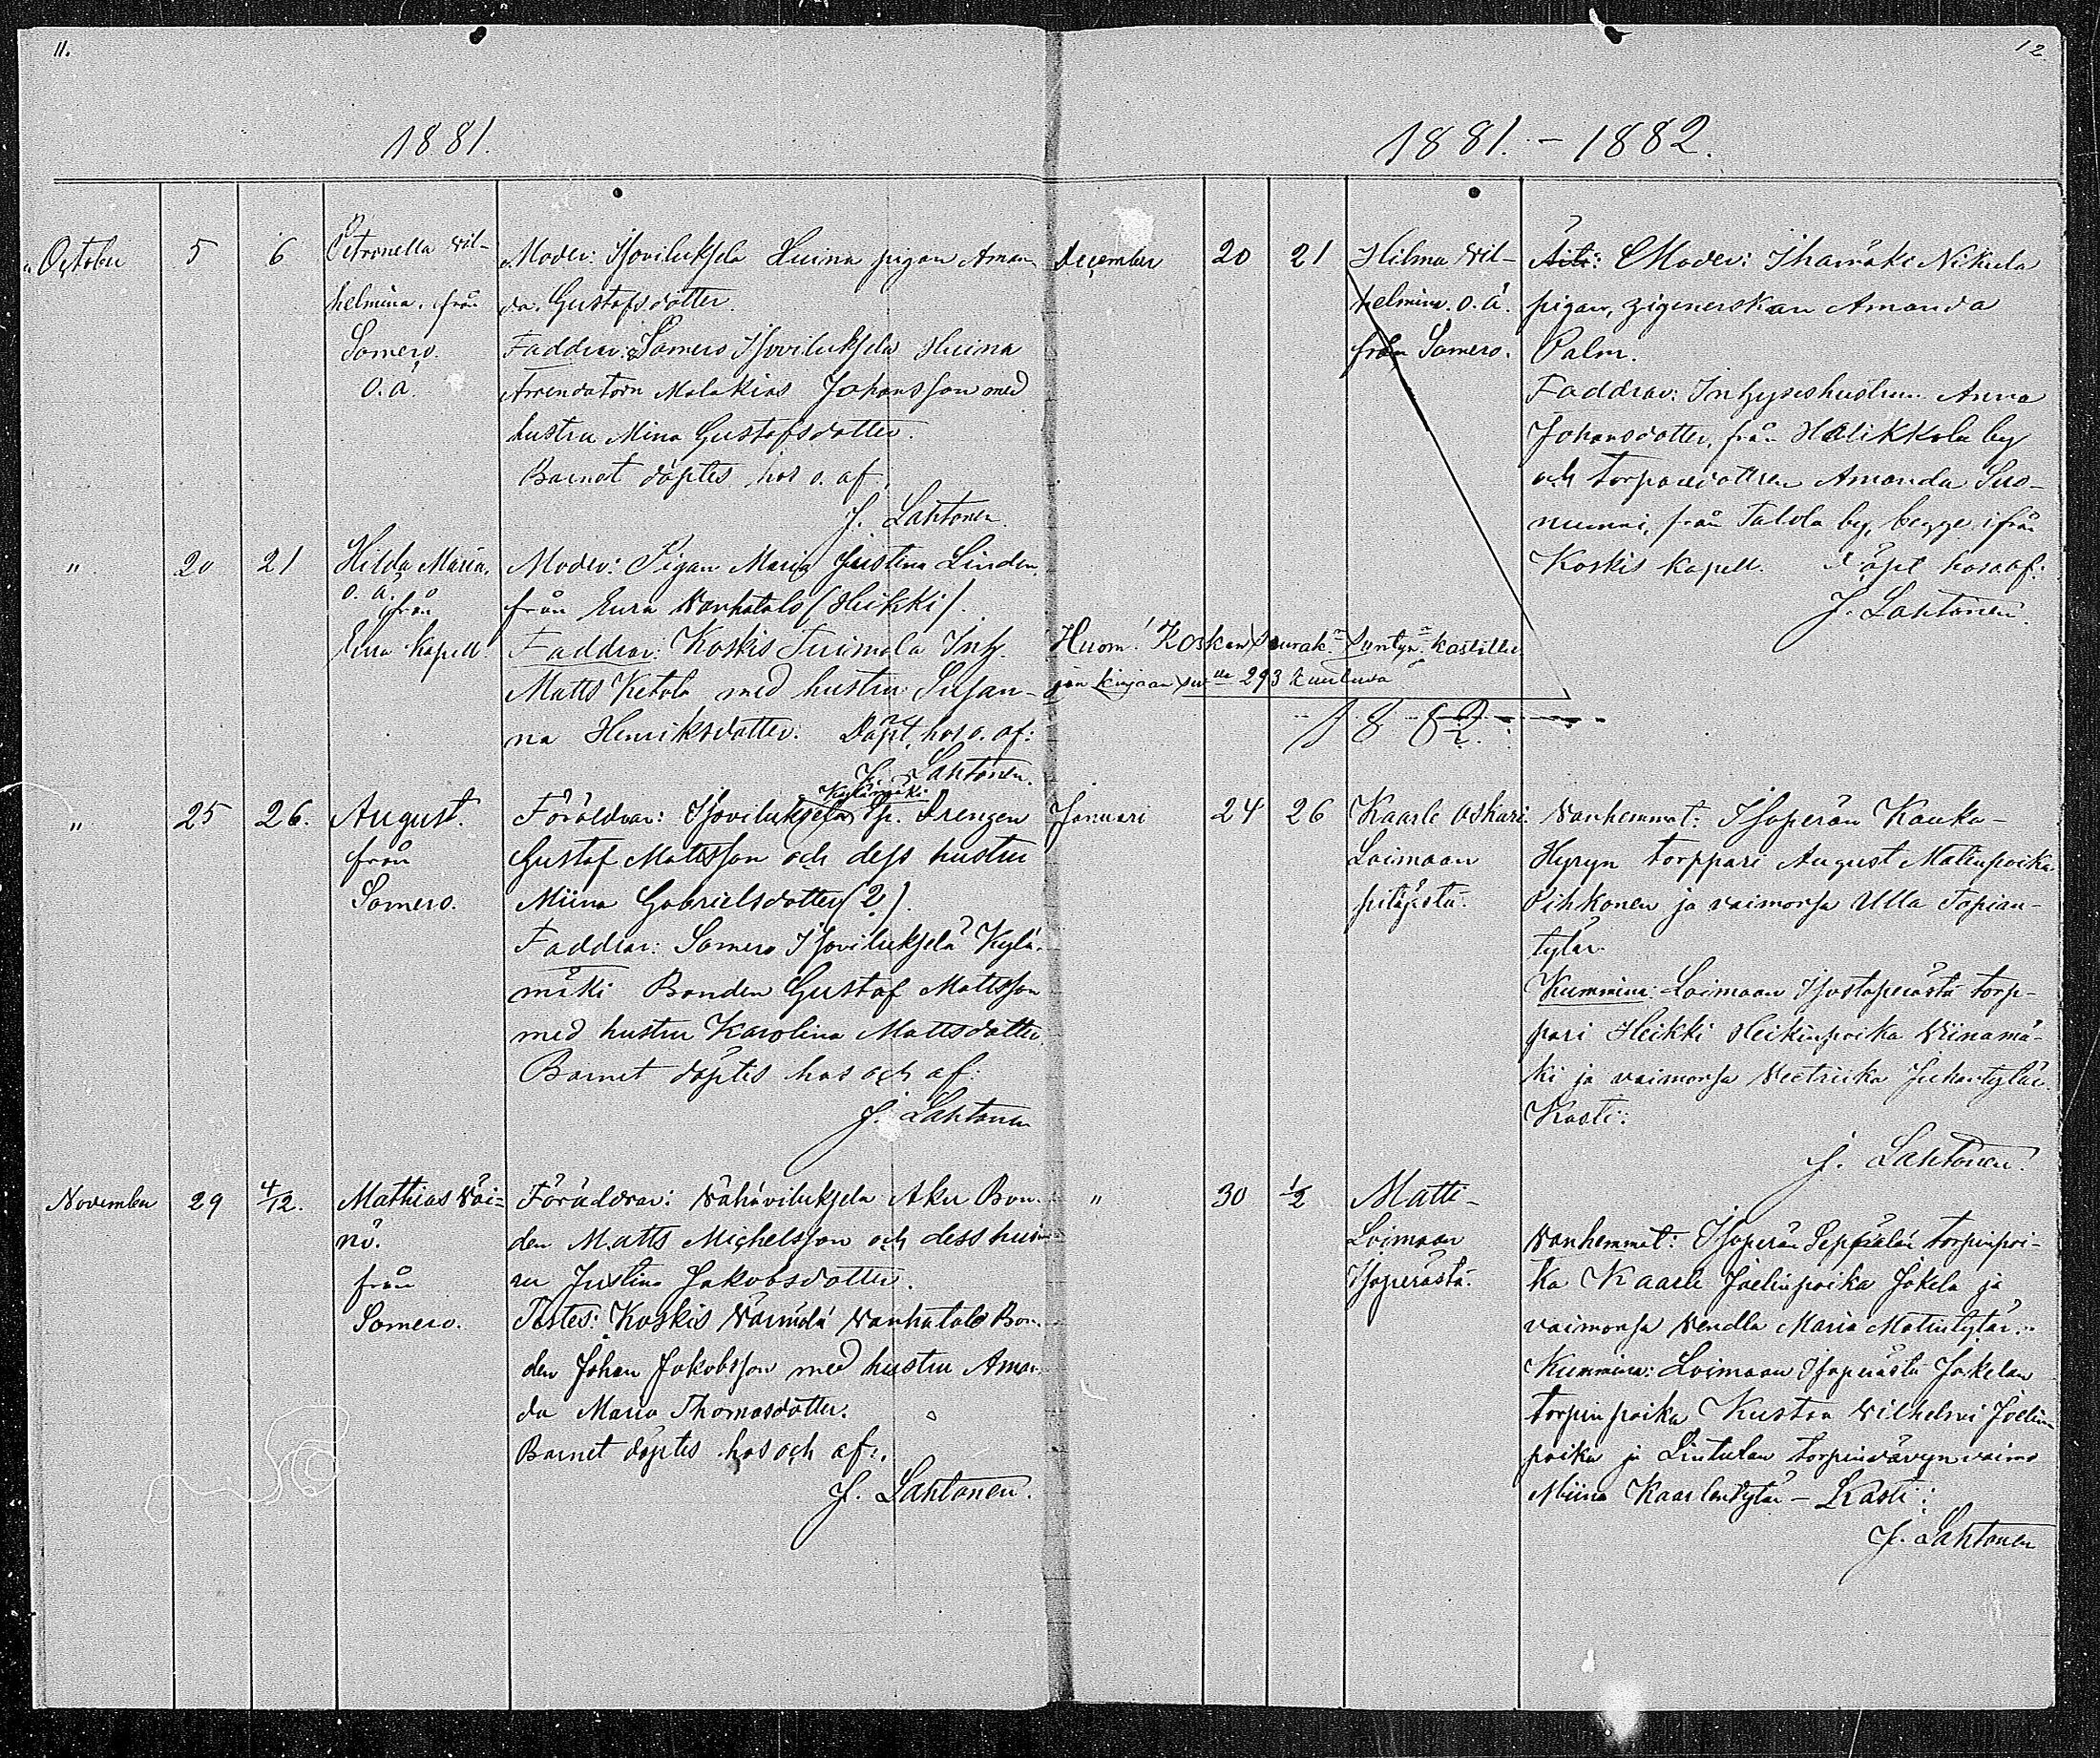 11.
1881.
October 5 6 Petronella Wil-
helmina. från
Somero.
o. ä.
Moder: Isoviluksela Huina pigan Aman-
da Gustafsdotter.
Faddrar: Somero Isoviluksela Huina
Arrendatorn Malakias Johansson med
hustru Mina Gustafsdotter.
Barnet döptes hos o. af
J. Lahtonen.
" 20 21 Hilda Maria.
o. ä.
från
Eura kapell.
Moder: Pigan Maria Justina Linden
från Eura Vanhatalo (Heikki).
Faddrar: Koskis Tuimala Inh.
Matts Ketola med hustru Susan-
na Henriksdotter. Döpt hos o. af:
J. Lahtonen.
" 25 26. August.
från
Somero.
Kylämäki
Föräldrar: Isoviluksela Drengen
Gustaf Mattsson och dess hustru
Miina Gabrielsdotter (2).
Faddrar: Somero Isoviluksela Kylä-
mäki Bonden Gustaf Mattsson
med hustru Karolina Mattsdotter.
Barnet döptes hos och af:
J. Lahtonen
November 29 4/12. Mathias Wäi-
nö.
från
Somero.
Föräldrar: Vähäviluksela Aku Bon-
den Matts Michelsson och dess hust-
ru Justina Jakobsdotter.
Testes: Koskis Vanhatalo Bon-
den Johan Jakobsson med hustru Aman-
da Maria Thomasdotter.
Barnet döptes hos och af:
J. Lahtonen.
12.
1881. - 1882.
December 20 21 Hilma Wil-
helmina. o. ä.
från Somero.
Äiti: Moder: Ihamäki Nikula
pigan, zigenerskan Amanda
Palm.
Faddrar: Inhyseshustrun Anna
Johansdotter, från Halikkola by
och torparedottren Amanda Suo-
nummi, från Talola by, begge ifrån
Koskis kapell. Döpt hos o. af:
J. Lahtonen.
Huom! Kosken seurak. syntyn. kastettu-
jen kirjaan siv. 293 kuuluva
1882.
Januari 24 26 Kaarle Oskari.
Loimaan
pitäjästä.
Vanhemmat: Isoperän Kauka-
Hyryn torppari August Matinpoika
Pihkonen ja vaimonsa Ulla Tapian-
tytär.
Kummina: Loimaan Isostaperästä torp-
pari Heikki Heikinpoika Viinamä-
ki ja vaimonsa Vectriika Juhantytär.
Kasti:
J. Lahtonen.
" 30 1/2 Matti-
Loimaan
Isoperästä.
Vanhemmat: Isoperän Seppälän torpinpoi-
ka Kaarle Joelinpoika Jokela ja
vaimonsa Vendla Maria Matintytär.
Kummina: Loimaan Isoperästä Jokelan
torpinpoika Kustaa Vilhelmi Joelin-
poika ja Lintulan torpinvävyn vaimo
Miina Kaarlentytär - Kasti:
J. Lahtonen